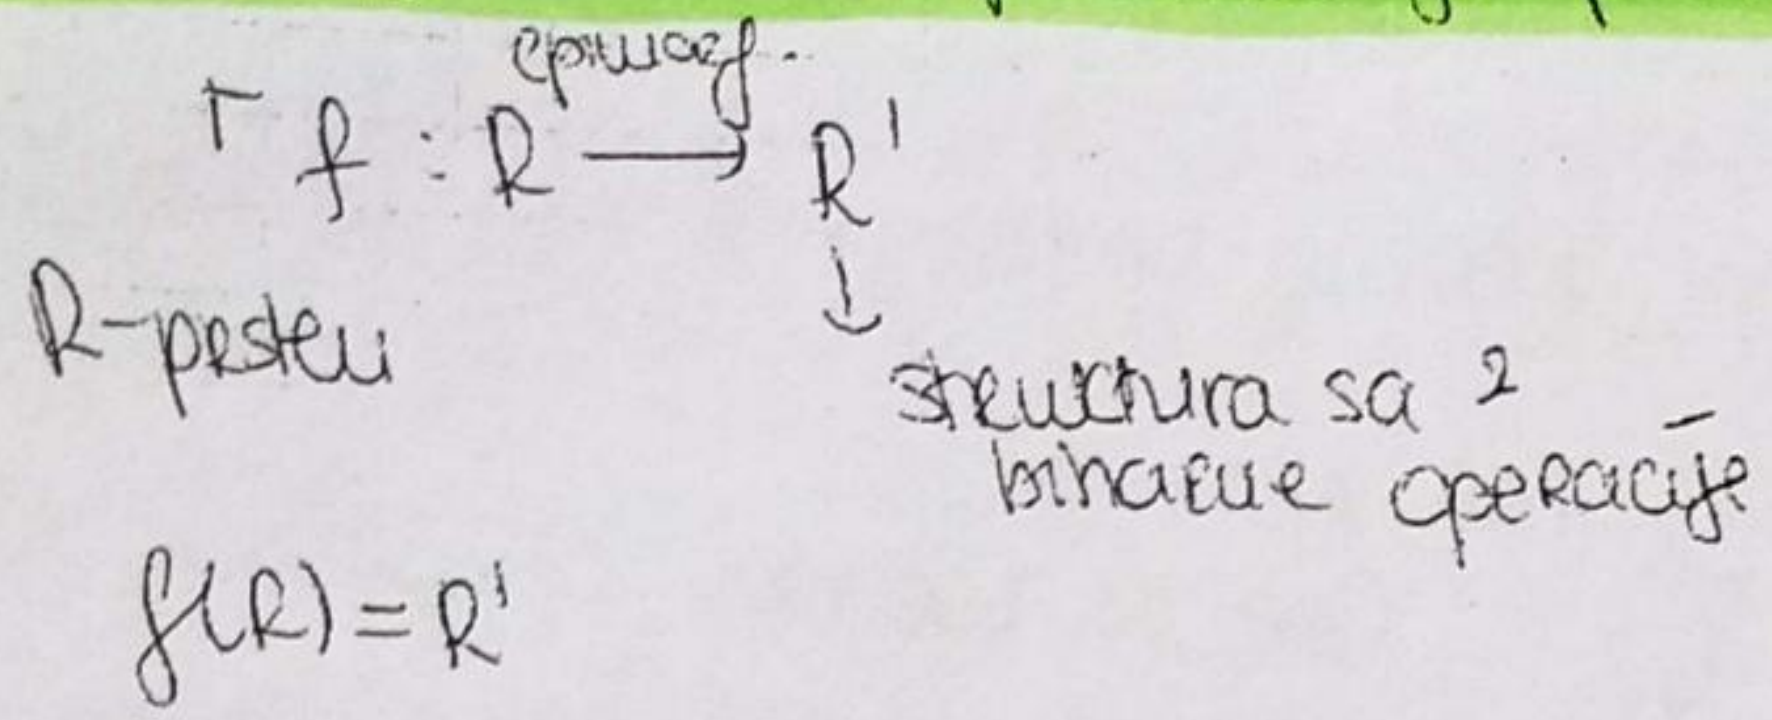 epimorf.
⌈ f : R ⟶ R'
↓
R-prsten
struktura sa 2
binarne operacije
f(R) = R'